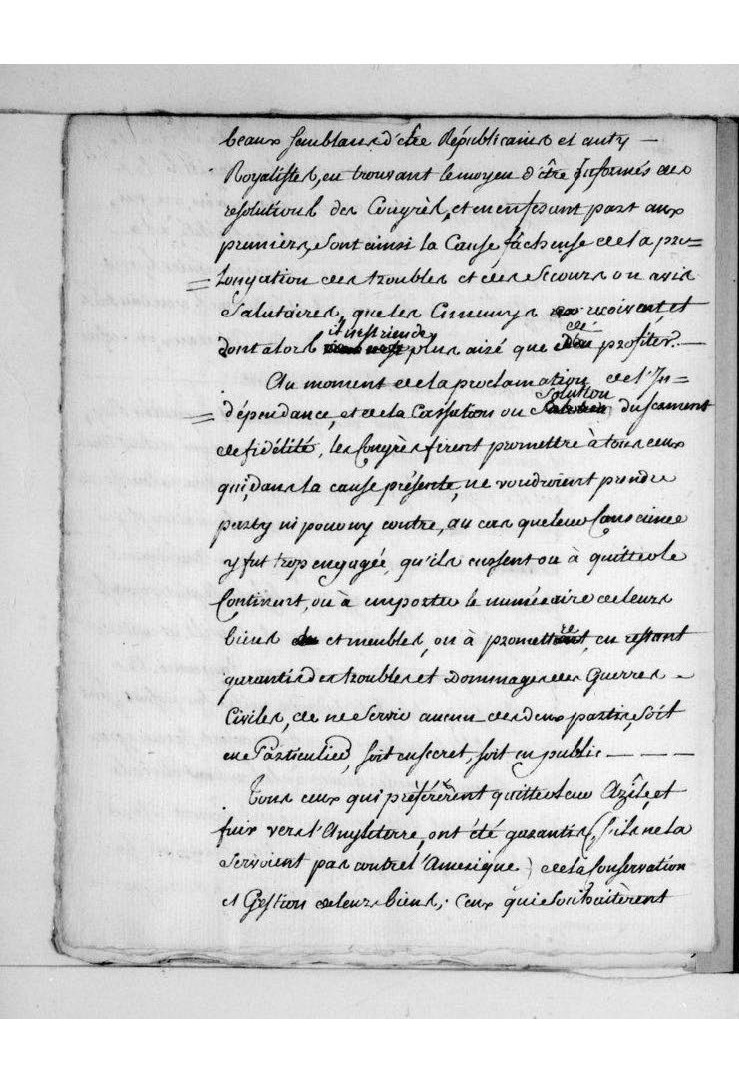 beaux semblans d'être Républicains et anty —
Royalistes, en trouvant le moyen d'être informés des
resolutions des Congrès, et en en fesant part aux
premiers, sont ainsi la Cause fâcheuse de la pro=
longation des troubles et des secours ou avis
Salutaires, que les Ennemys reçoivent et
dont alors il n'est rien de plus aizé que de profiter. —
Au moment de la proclamation de l'In=
dépendance, et de la Cassation ou Solution du serment
de fidélité, les Congrès firent promettre à tous ceux
qui, dans la cause présente, ne voudroient prendre
party ni pour ny contre, au cas que leur Conscience
y fut trop engagée, qu'ils eussent ou à quitter le
Continent, ou à emporter le numéraire de leurs
biens et meubles, ou à promettre, en restant
garantis des troubles et Dommages des Guerres
Civiles, de ne servir aucun des deux partis, soit
en Particulier, soit en secret, soit en public — — — —
Tous ceux qui préférèrent quitter leur Azile, et
fuir vers l'Angleterre, ont été garantis, (s'ils ne la
servoient pas contre l'Amerique) de la Conservation
et Gestion de leurs biens; Ceux qui souhaitèrent